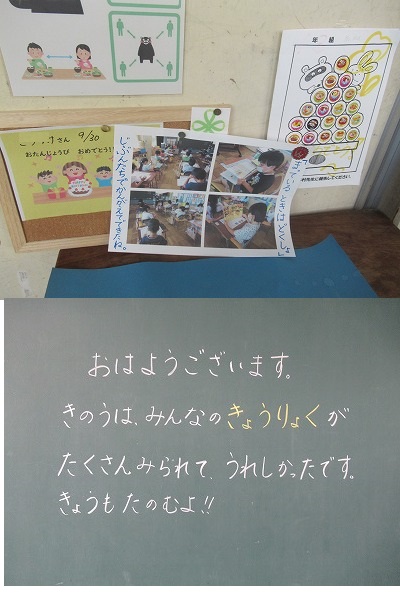 年 組
さん 9/30
おたんじょうび おめでとう!
じぶんたちでかんがえてできたね。
まっているときはどくしょ
おはようございます。
きのうは、みんなのきょうりょくが
たくさんみられて、うれしかったです。
きょうもたのむよ!!